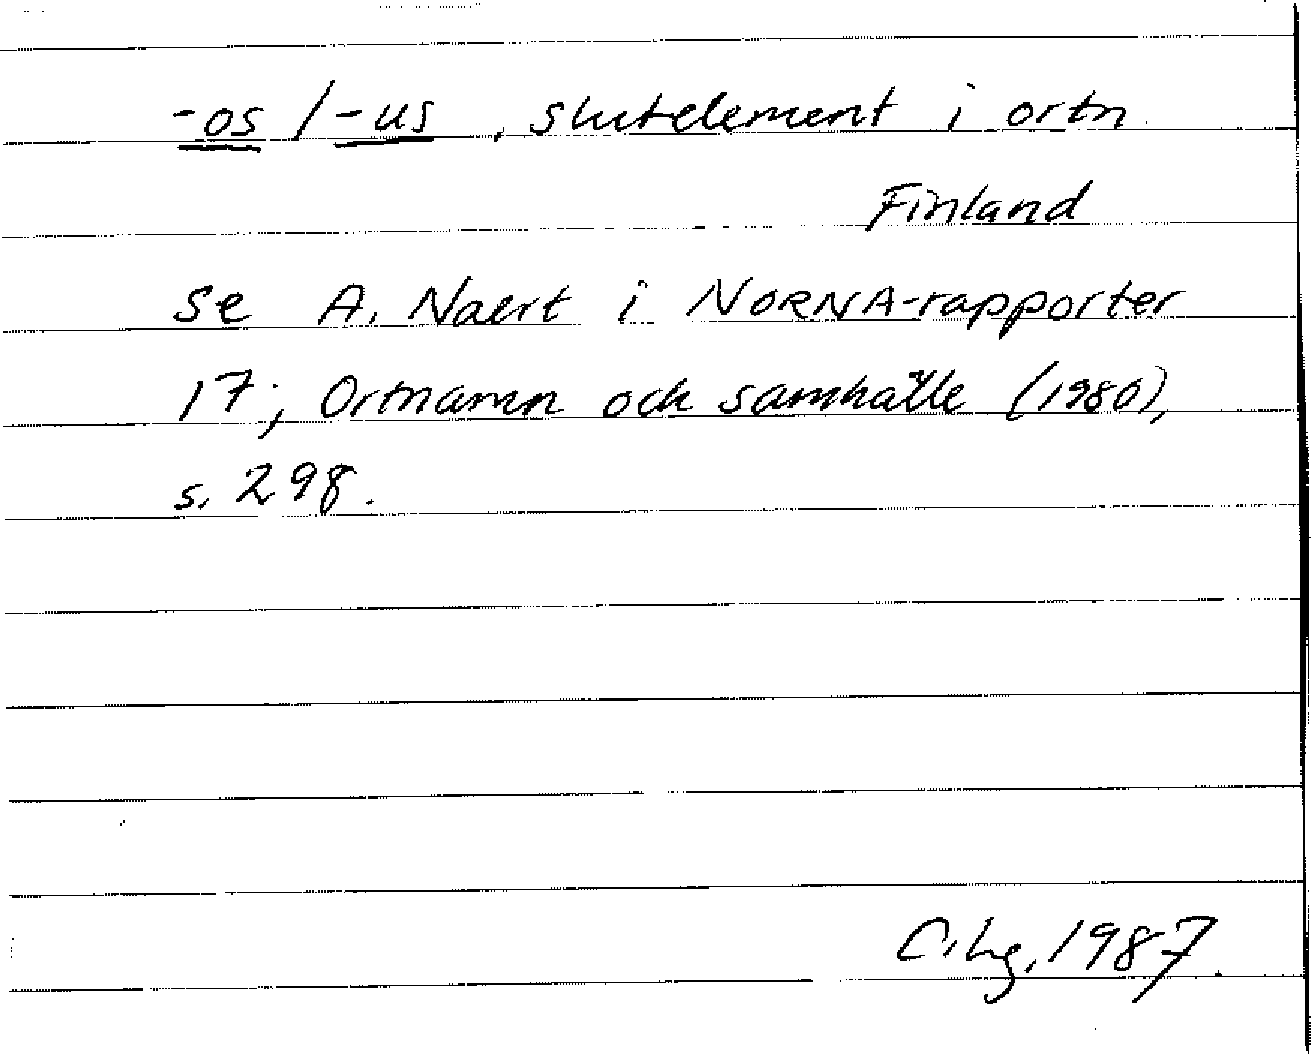 -os / -us, slutelement i ortn
Finland
se A. Naert i NORNA-rapporter
17; Ortnamn och samhälle (1980),
s. 298.
C. Lg, 1987.